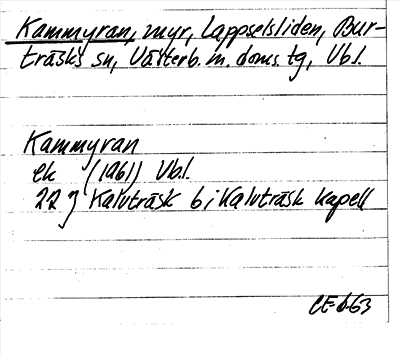 Kammyran, myr, Lappselsliden, Bur-
träsks sn, Västerb. m. doms. tg, Vbl.
Kammyran
ek (1961) Vbl.
22 j Kalvträsk 6 i Kalvträsk kapell
CE-6.63